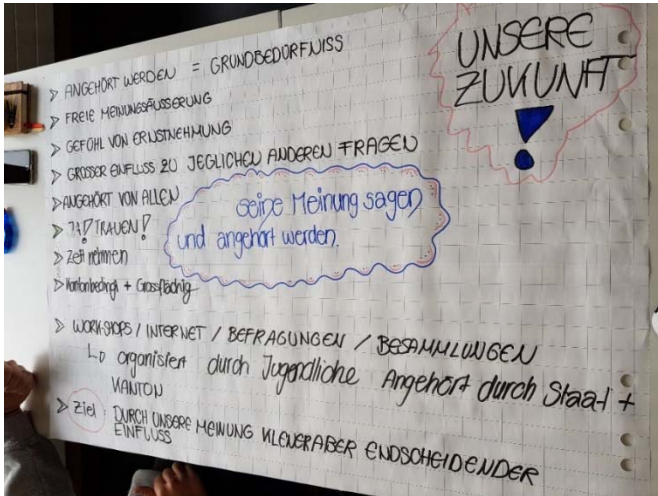 UNSERE
ZUKUNFT
!
> ANGEHÖRT WERDEN = GRUNDBEDÜRFNISS
> FREIE MEINUNGSÄUSSERUNG
> GEFÜHL VON ERNSTNEHMUNG
> GROSSER EINFLUSS ZU JEGLICHEN ANDEREN FRAGEN
> ANGEHÖRT VON ALLEN
seine Meinung sagen
und angehört werden.
> TRAUEN!
> Zeit nehmen
> Kantonbedingt + Grossflächig
> WORKSHOPS / INTERNET / BEFRAGUNGEN / BESAMMLUNGEN
↳ organisiert durch Jugendliche Angehört durch Staat +
KANTON
> Ziel: DURCH UNSERE MEINUNG KLEINER ABER ENDSCHEIDENDER
EINFLUSS